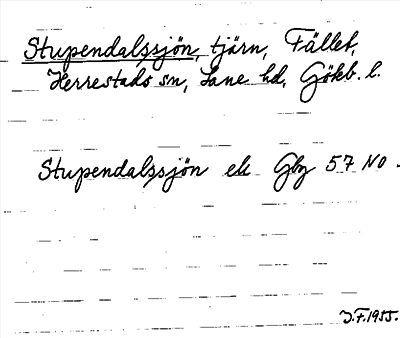 Stupendalssjön, tjärn, Fället,
Herrestads sn, Lane hd, Götkb. l.
Stupendalssjön ek Gbg 57 NO.
J.F. 1955.